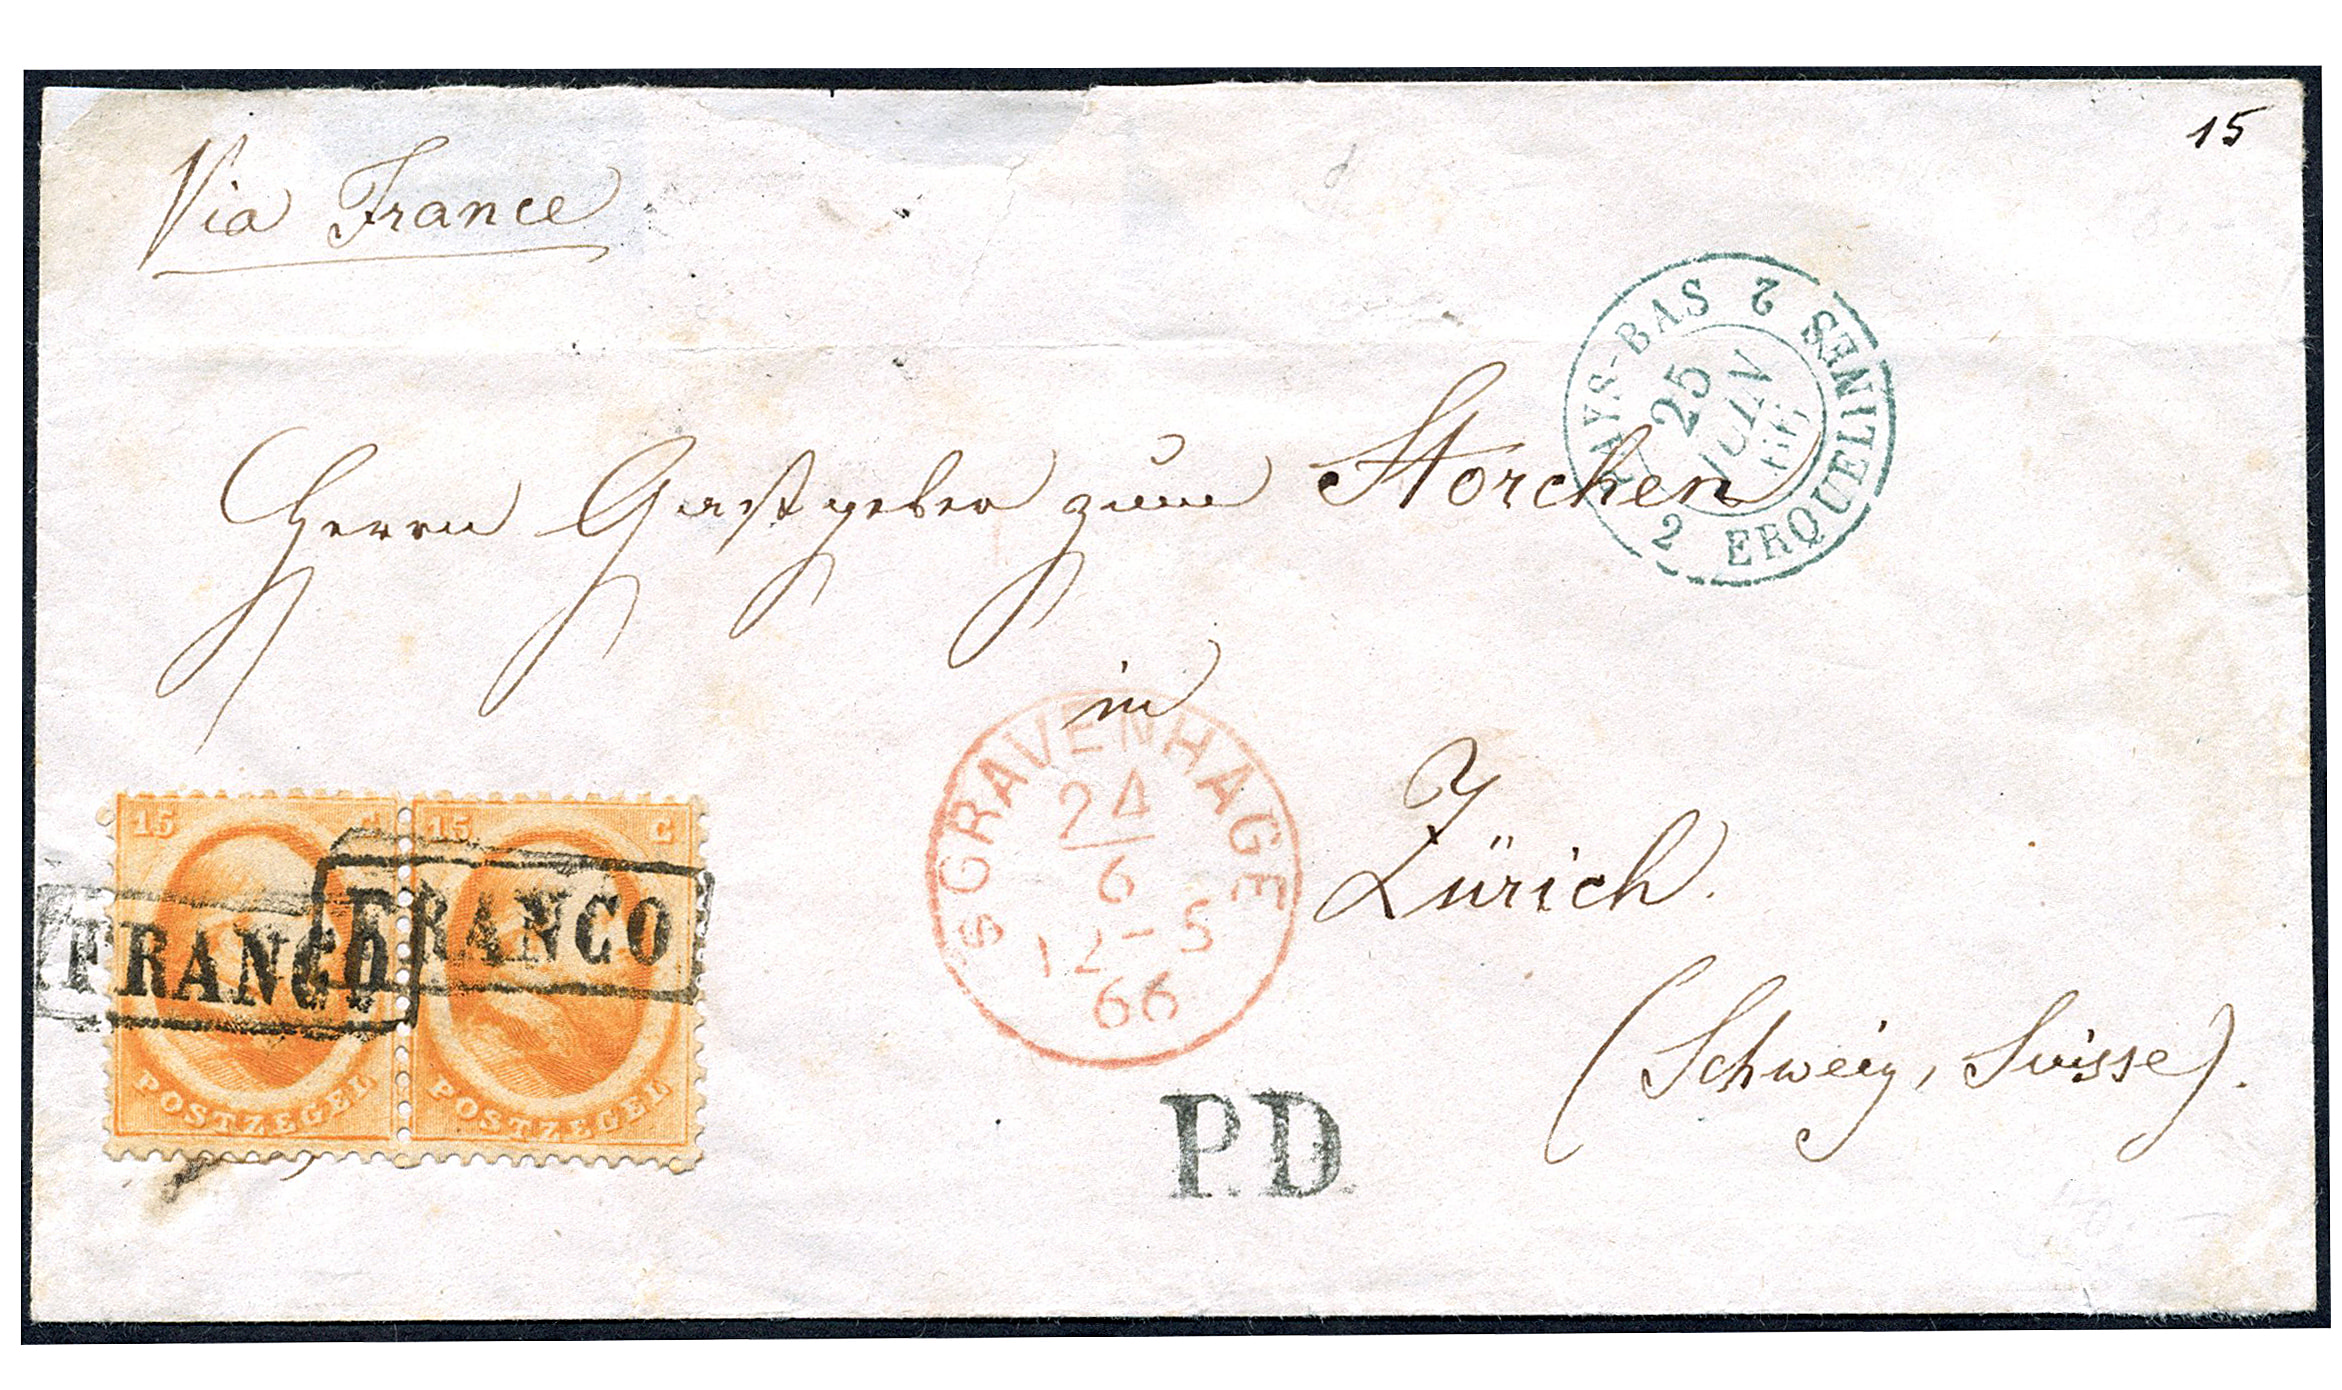 15
Via France
PAYS-BAS 2 ERQUELINES 2
25
JUIN
66
Herrn Gastgeber zum Storchen
in
Zürich.
(Schweiz, Suisse).
SGRAVENHAGE
24
6
12-5
66
P.D.
15 C 15 C
FRANCO FRANCO
POSTZEGEL POSTZEGEL